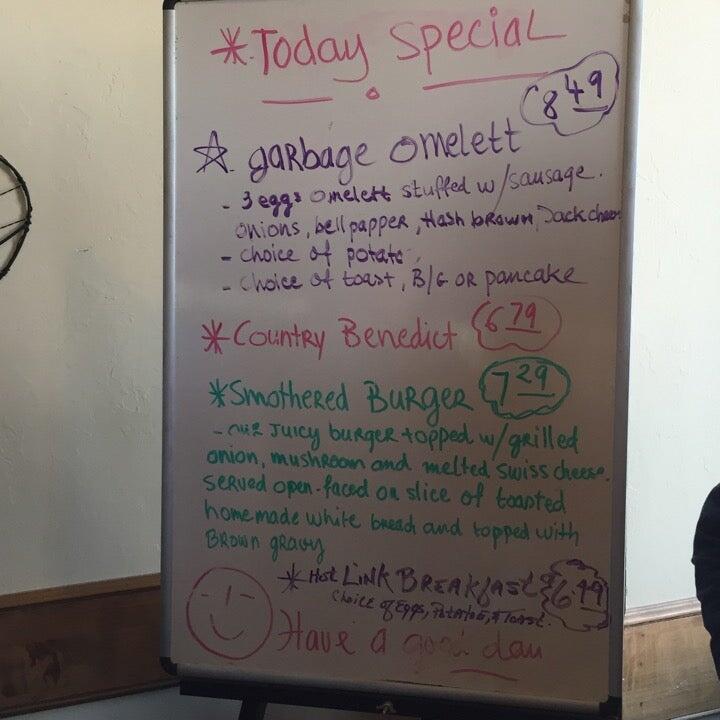 *Today Special
8 49
garbage omelett
- 3 eggs omelett stuffed w/sausage.
onions, bell papper, Hash brown, Jack chees
- choice of potato
- Choice of toast, B/G OR pancake
*Country Benedict 6 79
*Smothered Burger 7 29
- our Juicy burger topped w/grilled
onion, mushroom and melted swiss cheese.
served open-faced on slice of toasted
homemade white bread and topped with
Brown gravy
*Hot Link Breakfast 6.49
Choice of Eggs, Potatoes, & Toast.
Have a good day